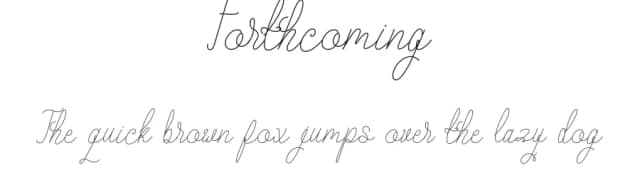 Forthcoming
The quick brown fox jumps over the lazy dog